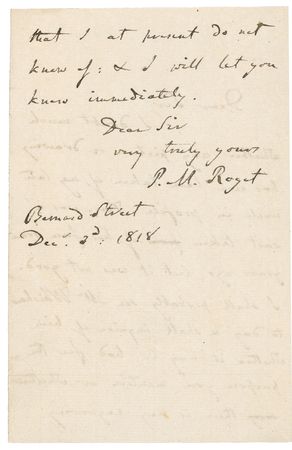 that I at present do not
know of: & I will let you
know immediately.
Dear Sir
very truly yours
P. M. Roget
Bernard Street
Decr. 2d. 1818